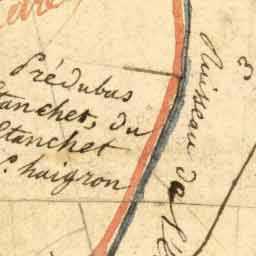 Prédubas
tanchet, du
Etanchet
P. haigron
Ruisseau de l'E